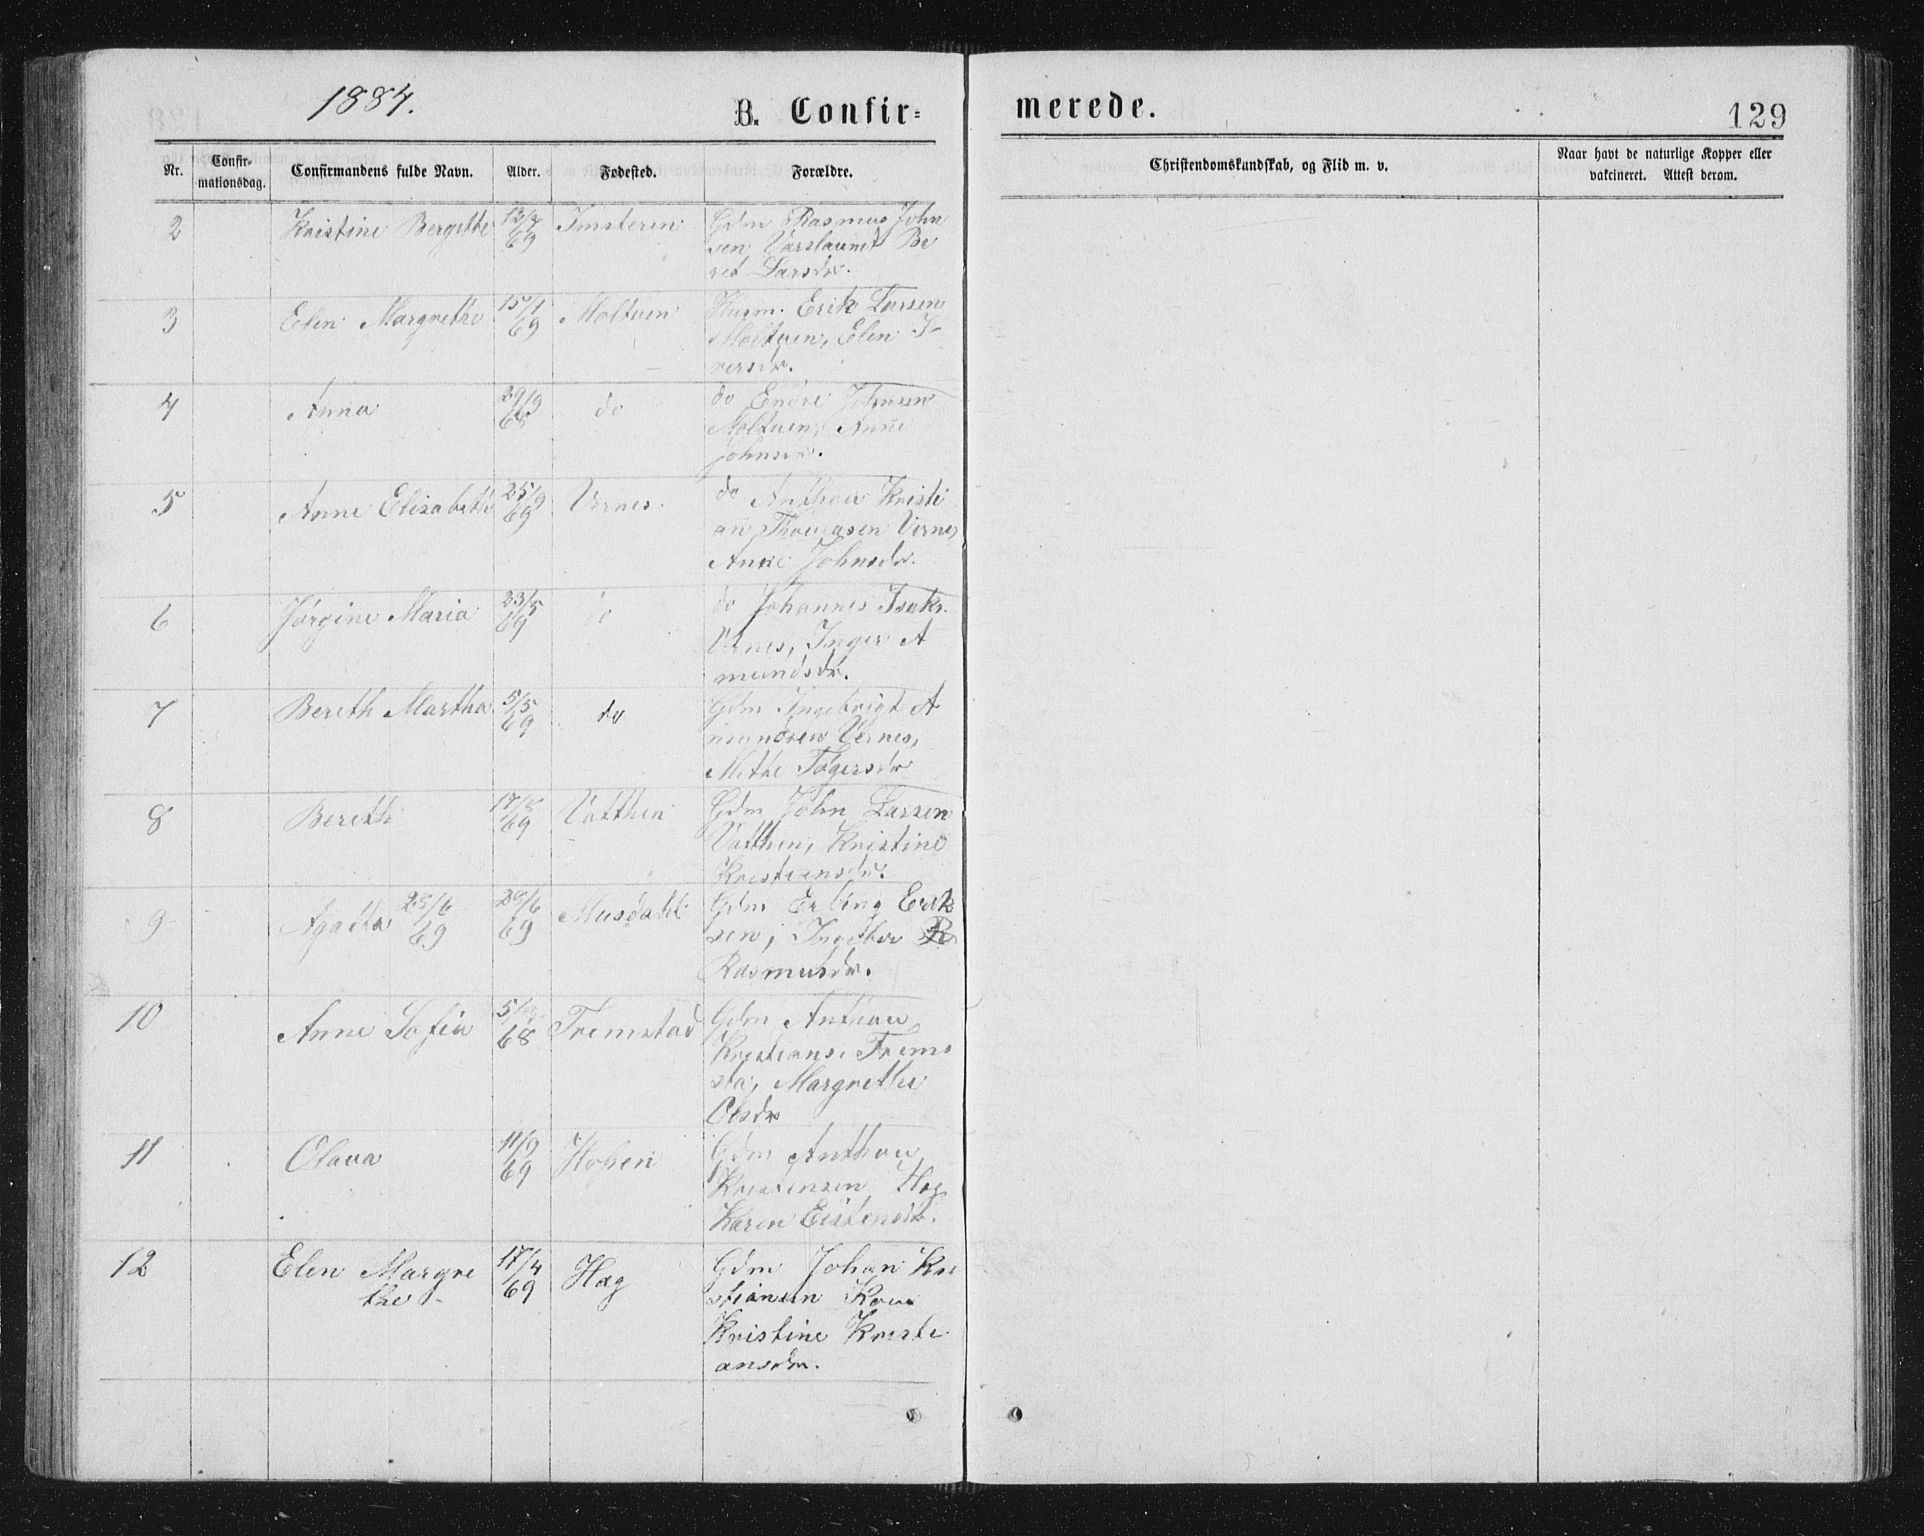 1884.
B. Confir=
merede.
129
Nr.
Confir-
mationsdag.
Confirmandens fulde Navn.
Alder.
Fødested.
Forældre.
Christendomskundskab, og Flid m. v.
Naar havt de naturlige Kopper eller
vakcineret. Attest derom.
2 Kristine Bergitte Gdm Rasmus John
69 sen Be
ret Larsdr.
3 Elen Margrethe 15/1 Moltuen Husm. Erik Larsen
69 Moltuen, Elen I-
versdr.
4 Anna 29/9 do do Endre Johnsen
Moltuen, Anne
Johnsdr.
5 Anne Elisabeth 25/9 Vernes. do Anthon Kristi
69 an Thomasen Vernes
Anne Johnsdr.
6 Jørgine Maria 23/5 do do Johannes Isaks.
69 Vernes, Inger A
mundsdr.
7 Bereth Martha 5/5 do Gdm Ingebrigt A
69 mundsen Vernes,
Mette
8 Bereth Vatthen Gdm John Larsen
69 Vatthen, Kristine
Kristiansdr.
9 25/6 Musdahl Gdm Erling Erik
69 69 sen,
Rasmusdr.
10 Anne Sofia Fremstad Gdm Anthon
68 Kristians. Frem
sta, Margrethe
Olsdr
11 Olava 11/9 Gdm Anthon
69 Kristensen Hag
Karen
12 Elen Margre 17/4 Hag Gdm Johan Kri
the 69 stiansen
Kristine Kristi
ansdr.